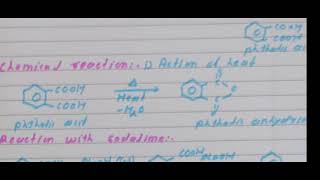 COOH
COOH
phthalic aci
Chemical reaction:- 1) Action of heat
COOH
COOH
Heat
-H₂O
phthalic acid
phthalic anhydri
Reaction with sodalime:-
COOH